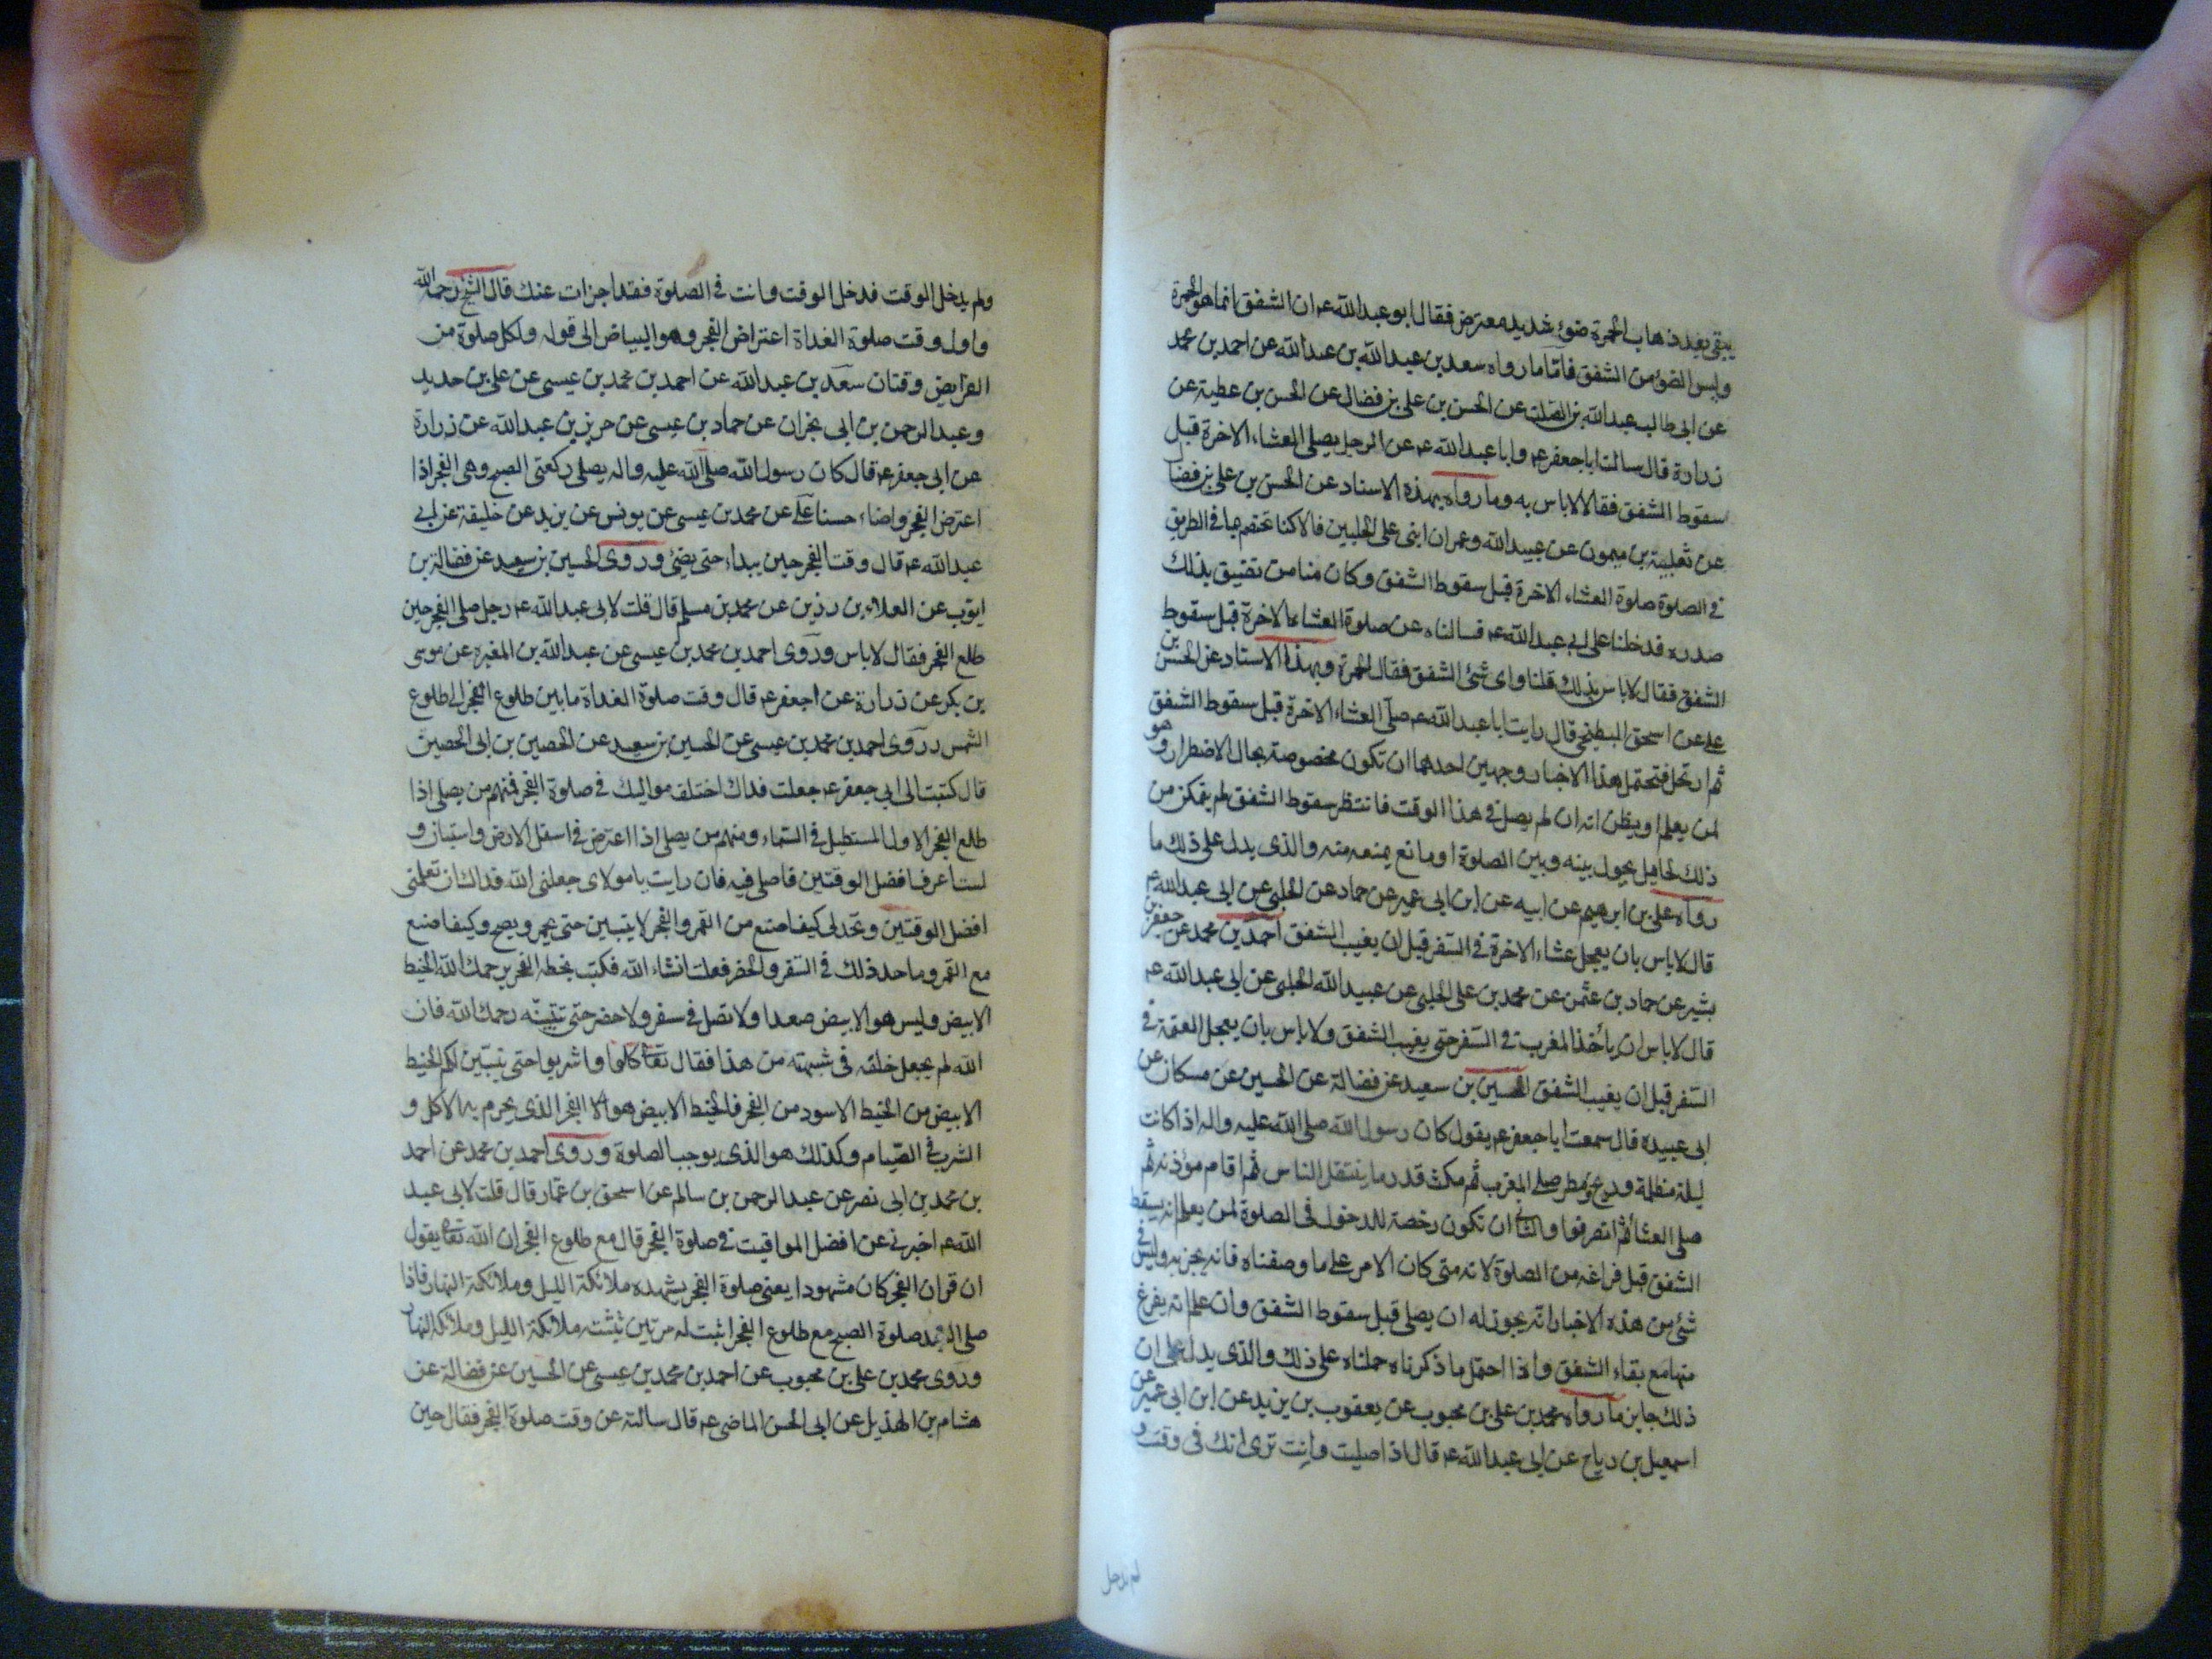 يبقى بعد ذهاب الحمرة ضوء شديد معترض فقال ابو عبد الله عم ان الشفق انما هو الحمرة
وليس الضوء من الشفق فاما ما رواه سعد بن عبد الله بن عبد الله عن احمد بن محمد
عن ابى طالب عبد الله بن الصلت عن الحسن بن على بن فضال عن الحسن بن عطية عن
زرارة قال سالت ابا جعفر عم وابا عبد الله عم عن الرجل يصلى العشاء الاخرة قبل
سقوط الشفق فقالا لاباس به وما رواه بهذه الاسناد عن الحسن بن على بن فضا
عن ثعلبية بن ميمون عن عبيد الله وعمران ابنى على الحلبين قالا كنا نختصم بها فى الطريق
فى الصلوة صلوة العشاء الاخرة قبل سقوط الشفق وكان منا من تضيق بذلك
صدره فدخلنا على ابى عبد الله عم فسالناه عن صلوة العشاء الاخرة قبل سقوط
الشفق فقال لاباس بذلك قلنا واى شئ الشفق فقال الحمرة وبهذا الاسناد عن الحسن بن
على عن اسحق البطيخى قال رايت ابا عبد الله عم صلى العشاء الاخرة قبل سقوط الشفق
ثم ارتحل فتحتمل هذا الاخبار وجهين احدهما ان تكون مخصوصة بحال الاضطرار وهو
لمن يعلم او يظن انه ان لم يصل فى هذا الوقت فانتظر سقوط الشفق لم يتمكن من
ذلك لحايل يحول بينه وبين الصلوة او مانع يمنعه منه والذى يدل على ذلك ما
رواه على بن ابرهيم عن ابيه عن ابن ابى عمير عن حماد عن الحلبى عن ابى عبد الله عم
قال لاباس بان يعجل عشاء الاخرة فى السفر قبل ان يغيب الشفق احمد بن محمد عن جعفر بن
بشير عن حماد بن عثمن عن محمد بن على الحلبى عن عبيد الله الحلبى عن ابى عبد الله عم
قال لاباس ان يأخذ المغرب فى السفر حتى يغيب الشفق ولاباس بان يعجل العتمة فى
السفر قبل ان يغيب الشفق الحسين بن سعيد عن فضالة عن الحسين عن مسكان عن
ابى عبيده قال سمعت ابا جعفر عم يقول كان رسول الله صلى الله عليه واله اذا كانت
ليلة مظلمة وريح ومطر صلى المغرب ثم مكث قدر ما ينتقل الناس ثم اقام مؤذنه ثم
صلى العشاء ثم انصرفوا والثانى ان تكون رخصة للدخول فى الصلوة لمن يعلم انه يسقط
الشفق قبل فراغه من الصلوة لانه متى كان الامر على ما وصفناه فانه يجزيه وليس فى
شئ من هذه الاخبار انه يجوز له ان يصلى قبل سقوط الشفق وان علم انه يفرغ
منها مع بقاء الشفق واذا احتمل ما ذكرناه حملناه على ذلك والذى يدل على ان
ذلك جايز ما رواه محمد بن على بن محبوب عن يعقوب بن يزيد عن ابن ابى عمير عن
اسمعيل بن رياح عن ابى عبد الله عم قال اذا صليت وانت ترى انك فى وقت و
لم يدخل
ولم يدخل الوقت فدخل الوقت وانت فى الصلوة فقد اجزات عنك قال الشيخ رحمه الله
واول وقت صلوة الغداة اعتراض الفجر وهو البياض الى قوله ولكل صلوة من
الفرايض وقتان سعد بن عبد الله عن احمد بن محمد بن عيسى عن على بن حديد
وعبد الرحمن بن ابى نجران عن حماد بن عيسى عن حريز بن عبد الله عن زرارة
عن ابى جعفر عم قال كان رسول الله صلى الله عليه واله يصلى ركعتى الصبح وهى الفجر اذا
اعترض الفجر واضاء حسنا على عن محمد بن عيسى عن يونس عن يزيد عن خليفة عن ابى
عبد الله عم قال وقت الفجر حين يبداء حتى يضئ وروى الحسين بن سعيد عن فضالة بن
ايوب عن العلاء بن رزين عن محمد بن مسلم قال قلت لابى عبد الله عم رجل صلى الفجر حين
طلع الفجر فقال لاباس وروى احمد بن محمد بن عيسى عن عبد الله بن المغيره عن موسى
بن بكر عن زرارة عن اجعفر عم قال وقت صلوة الغداة ما بين طلوع الفجر الى طلوع
الشمس وروى احمد بن محمد بن عيسى عن الحسين بن سعيد عن الحصين بن ابى الحصين
قال كتبت الى ابى جعفر عم جعلت فداك اختلف مواليك فى صلوة الفجر فمنهم من يصلى اذا
طلع الفجر الاول المستطيل فى السماء ومنهم من يصلى اذا اعترض فى اسفل الارض واستبان و
لست اعرف افضل الوقتين فاصلى فيه فان رايت يا مولاى جعلنى الله فداك ان تعلمنى
افضل الوقتين وتحد لى كيف اصنع من القمر والفجر لا يتبين حتى يحمر ويصبح وكيف اصنع
مع القمر وما حد ذلك فى السفر والحضر فعلت انشاء الله فكتب بخطه الفجر يرحمك الله الخيط
الابيض وليس هو الابيض صعدا ولا تصل فى سفر ولا حضر حتى تتبينه رحمك الله فان
الله لم يجعل خلقه فى شبهته من هذا فقال تعا كلوا واشربوا حتى يتبين لكم الخيط
الابيض من الخيط الاسود من الفجر فالخيط الابيض هو الا الفجر الذى يحرم به الاكل و
الشرب فى الصيام وكذلك هو الذى يوجب الصلوة وروى احمد بن محمد عن احمد
بن محمد بن ابى نصر عن عبد الرحمن بن سالم عن اسحق بن عمار قال قلت لابى عبد
الله عم اخبرنى عن افضل المواقيت فى صلوة الفجر قال مع طلوع الفجر ان الله تعا يقول
ان قران الفجر كان مشهودا يعنى صلوة الفجر يشهده ملائكة الليل وملائكة النهار فاذا
صلى العبد صلوة الصبح مع طلوع الفجر اثبت له مرتين تثبته ملائكة الليل وملائكة النهار
وروى محمد بن على بن محبوب عن احمد بن محمد بن عيسى عن الحسين عن فضالة عن
هشام بن الهذيل عن ابى الحسن الماضى عم قال سالته عن وقت صلوة الفجر فقال حين